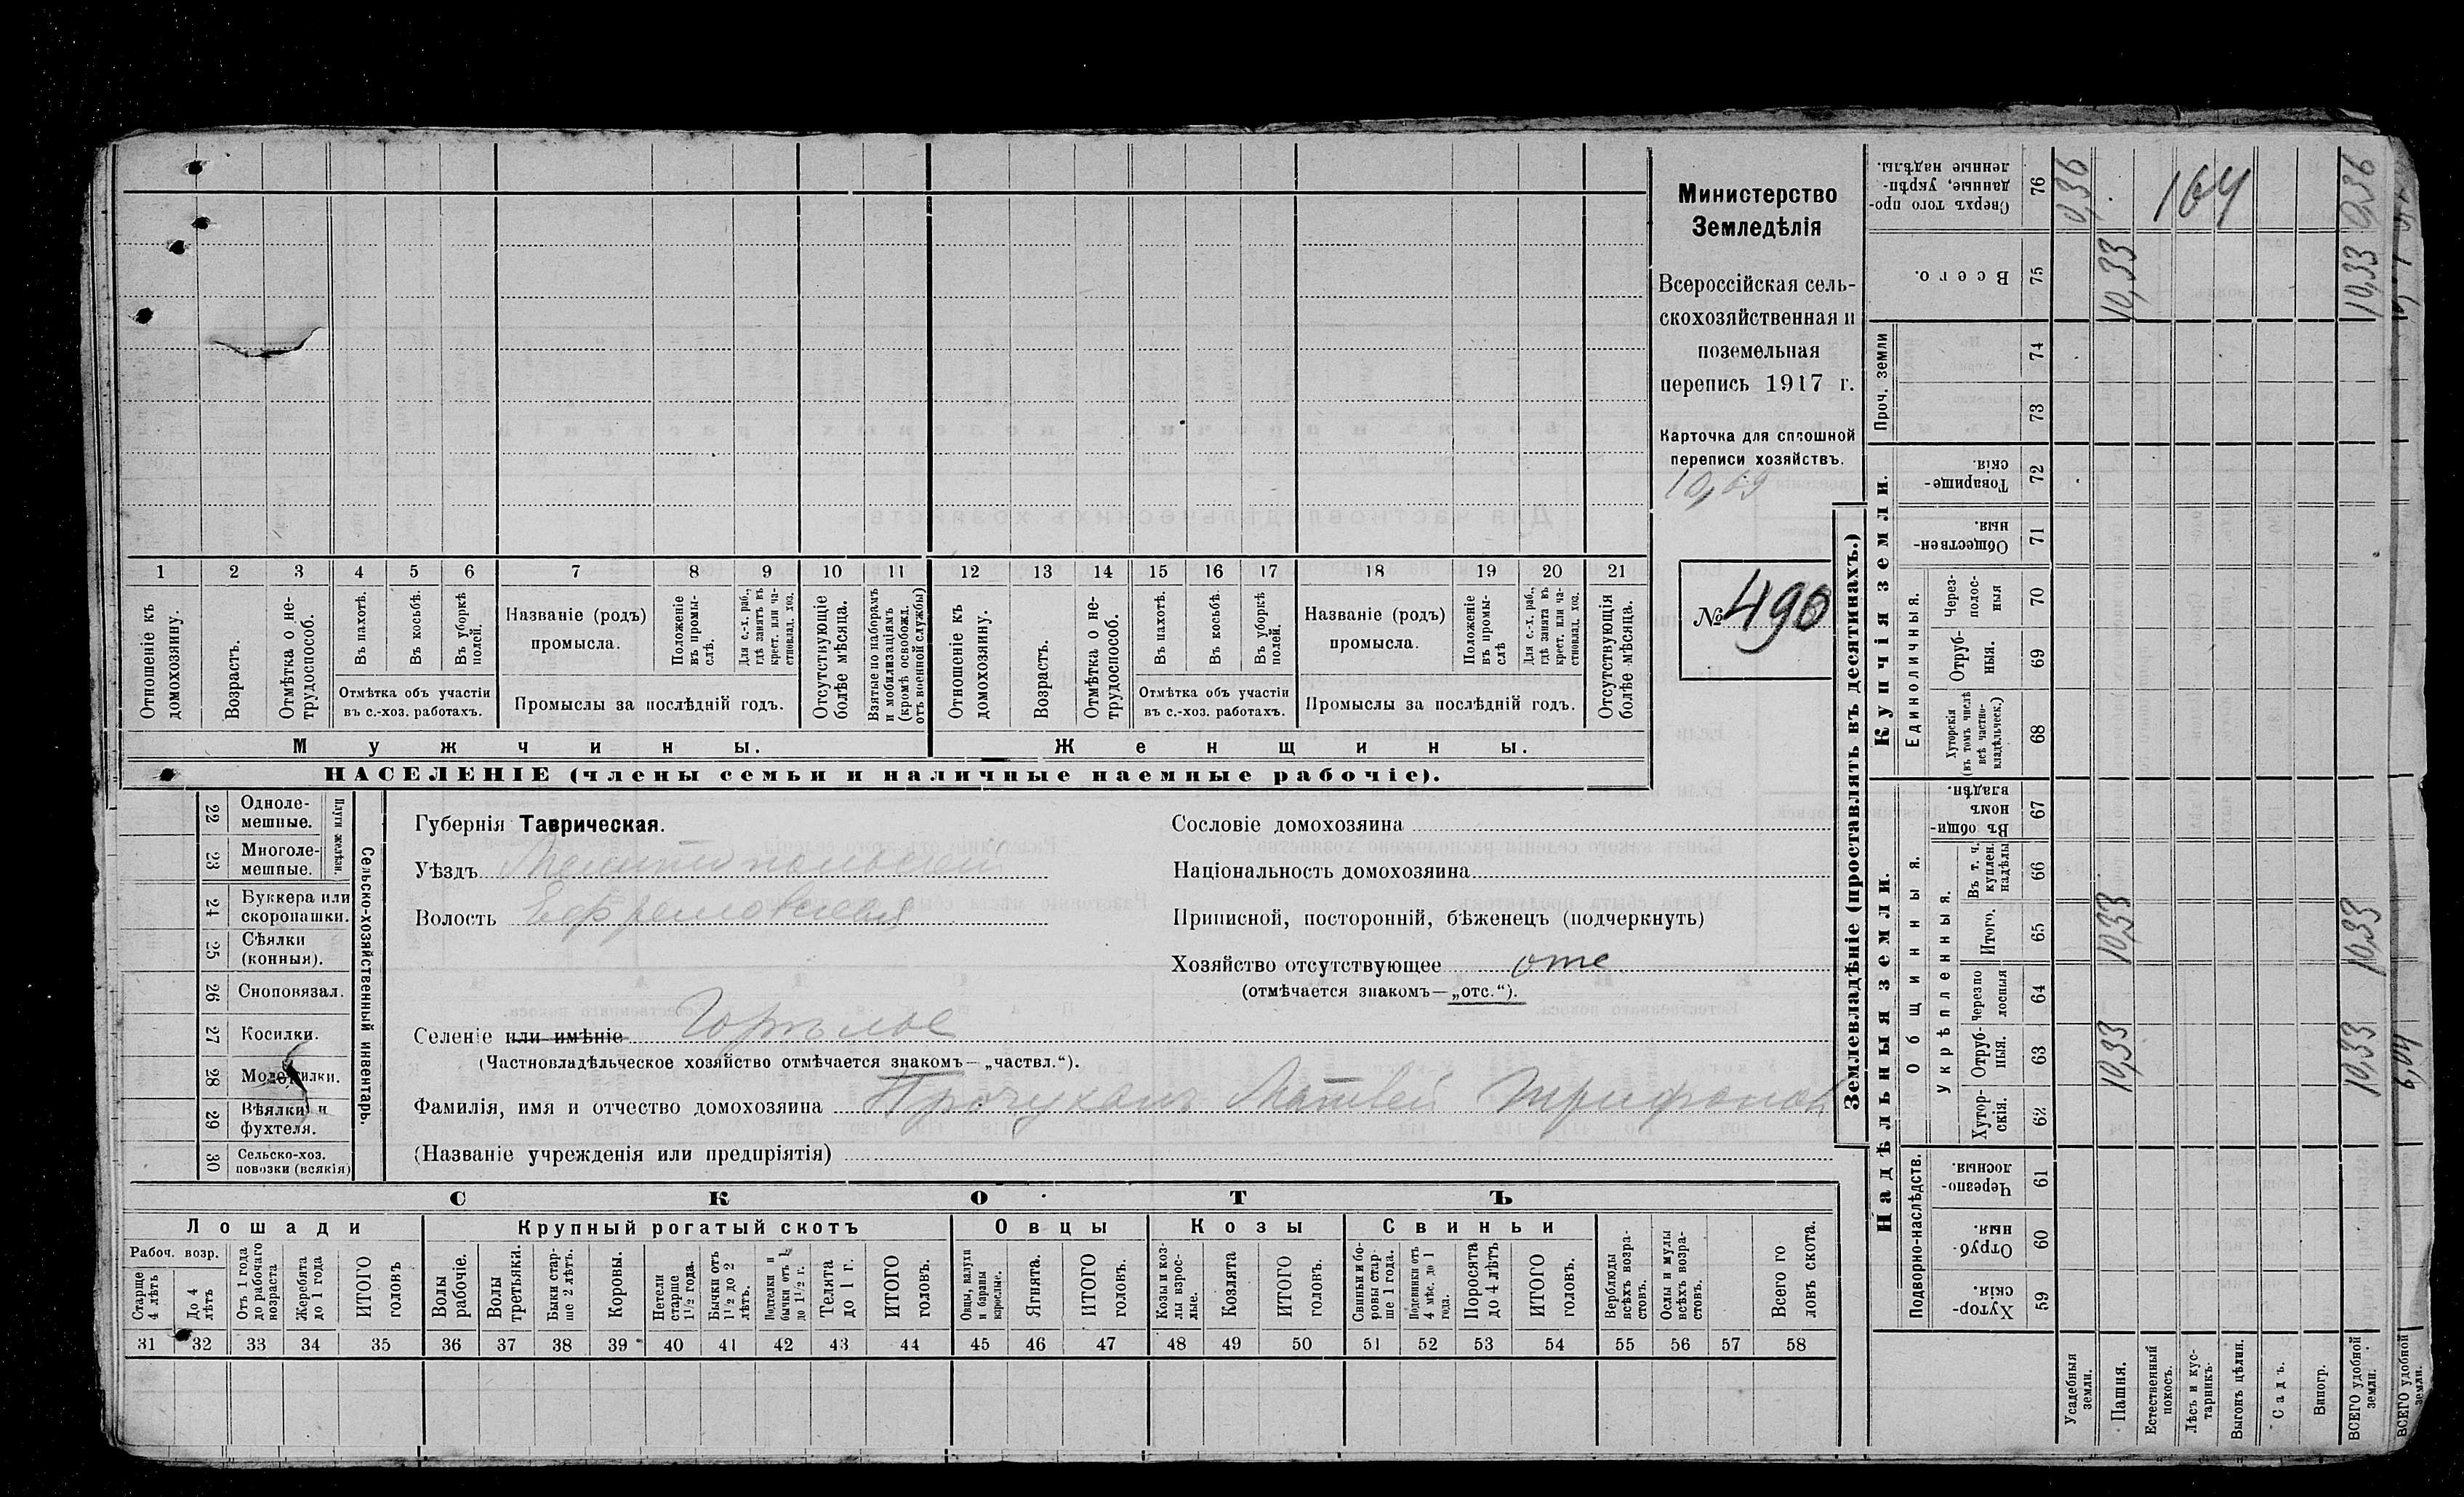 Министерство
Земледѣлія
Всероссійская сель-
скохозяйственная и
поземельная
перепись 1917 г.
Карточка для сплошной
переписи хозяйствъ.
10,69
№ 490
1 2 3 4 5 6 7 8 9 10 11 12 13 14 15 16 17 18 19 20 21
Отношеніе къ домохозяину.
Возрастъ.
Отмѣтка о не-трудоспособ.
Въ пахотѣ.
Въ косьбѣ.
Въ уборкѣ полей.
Отмѣтка объ участіи
въ с.-хоз. работахъ.
Названіе (родъ)
промысла.
Положеніе въ промы-слѣ.
Для с.-х. раб., гдѣ занятъ въ крест. или ча-стновлад. хоз.
Промыслы за послѣдній годъ.
Отсутствующіе болѣе мѣсяца.
Взятые по наборамъ и мобилизаціямъ (кромѣ освобожд. отъ военной службы)
Отношеніе къ домохозяину.
Возрастъ.
Отмѣтка о не-трудоспособ.
Въ пахотѣ.
Въ косьбѣ.
Въ уборкѣ полей.
Отмѣтка объ участіи
въ с.-хоз. работахъ.
Названіе (родъ)
промысла.
Положеніе въ промы-слѣ
Для с.-х. раб., гдѣ занята въ крест. или ча-стновлад. хоз.
Промыслы за послѣдній годъ.
Отсутствующія болѣе мѣсяца.
Мужчины.
Женщины.
НАСЕЛЕНІЕ (члены семьи и наличные наемные рабочіе).
Сельско-хозяйственный инвентарь.
Плуги желѣзн.
22 Одноле-мешные.
23 Многоле-мешные.
24 Буккера или скоропашки.
25 Сѣялки (конныя).
26 Сноповязал.
27 Косилки.
28 Молотилки.
29 Вѣялки и фухтеля.
30 Сельско-хоз. повозки (всякія)
Губернія Таврическая.
Уѣздъ Мелитопольскій
Волость Ефремовская
Селеніе или имѣніе Горѣлое
(Частновладѣльческое хозяйство отмѣчается знакомъ— „частвл.“).
Фамилія, имя и отчество домохозяина Прочуханъ Матвей Трифонов
(Названіе учрежденія или предпріятія)
Сословіе домохозяина
Національность домохозяина
Приписной, посторонній, бѣженецъ (подчеркнуть)
Хозяйство отсутствующее отс
(отмѣчается знакомъ—„отс.“).
СКОТЪ
Лошади
Рабоч. возр.
Старше 4 лѣтъ
До 4 лѣтъ
Отъ 1 года до рабочаго возраста
Жеребята до 1 года
ИТОГО головъ
Крупный рогатый скотъ
Волы рабочіе.
Волы третьяки.
Быки стар-ше 2 лѣтъ.
Коровы.
Нетели старше 1½ года.
Бычки отъ 1½ до 2 лѣтъ.
Подтелки и бычки отъ 1 до 1½ г.
Телята до 1 г.
ИТОГО головъ.
Овцы
Овцы, валухи и бараны взрослые.
Ягнята.
ИТОГО головъ.
Козы
Козы и коз-лы взрос-лые.
Козлята
ИТОГО головъ.
Свиньи
Свиньи и бо-ровы стар-ше 1 года.
Подсвинки отъ 4 мѣс. до 1 года.
Поросята до 4 лѣтъ
ИТОГО головъ.
Верблюды всѣхъ возра-стовъ.
Ослы и мулы всѣхъ возра-стовъ.
Всего го ловъ скота.
31 32 33 34 35 36 37 38 39 40 41 42 43 44 45 46 47 48 49 50 51 52 53 54 55 56 57 58
Землевладѣніе (проставлять въ десятинахъ.)
Надѣльныя земли.
Подворно-наслѣдств.
Хутор-скія. 59
Отруб-ныя. 60
Черезпо-лосныя. 61
Общинныя.
Укрѣпленныя.
Хутор-скія. 62
Отруб-ныя. 63 10,33 10,33 6,04
Черезпо лосныя 64
Итого. 65 10,33 10,33
Въ т. ч. куплен. надѣлы 66
Въ общи-номъ владѣн. 67
Купчія земли.
Единоличныя.
Хуторскія (въ томъ числѣ всѣ частно-владѣльческ.) 68
Отруб-ныя. 69
Через-полос-ныя 70
Обществен-ныя. 71
Товарище-скія. 72
Проч. земли
73
74
Всего. 75 10,33 10,33
Сверхъ того про-данные, укрѣп-ленные надѣлы. 76 0,36 164 0,36
Усадебныя земли.
Пашня.
Естественный покосъ.
Лѣсъ и кус-тарникъ.
Выгонъ цѣлин.
Садъ.
Виногр.
ВСЕГО удобной земли.
ВСЕГО удобной земли.